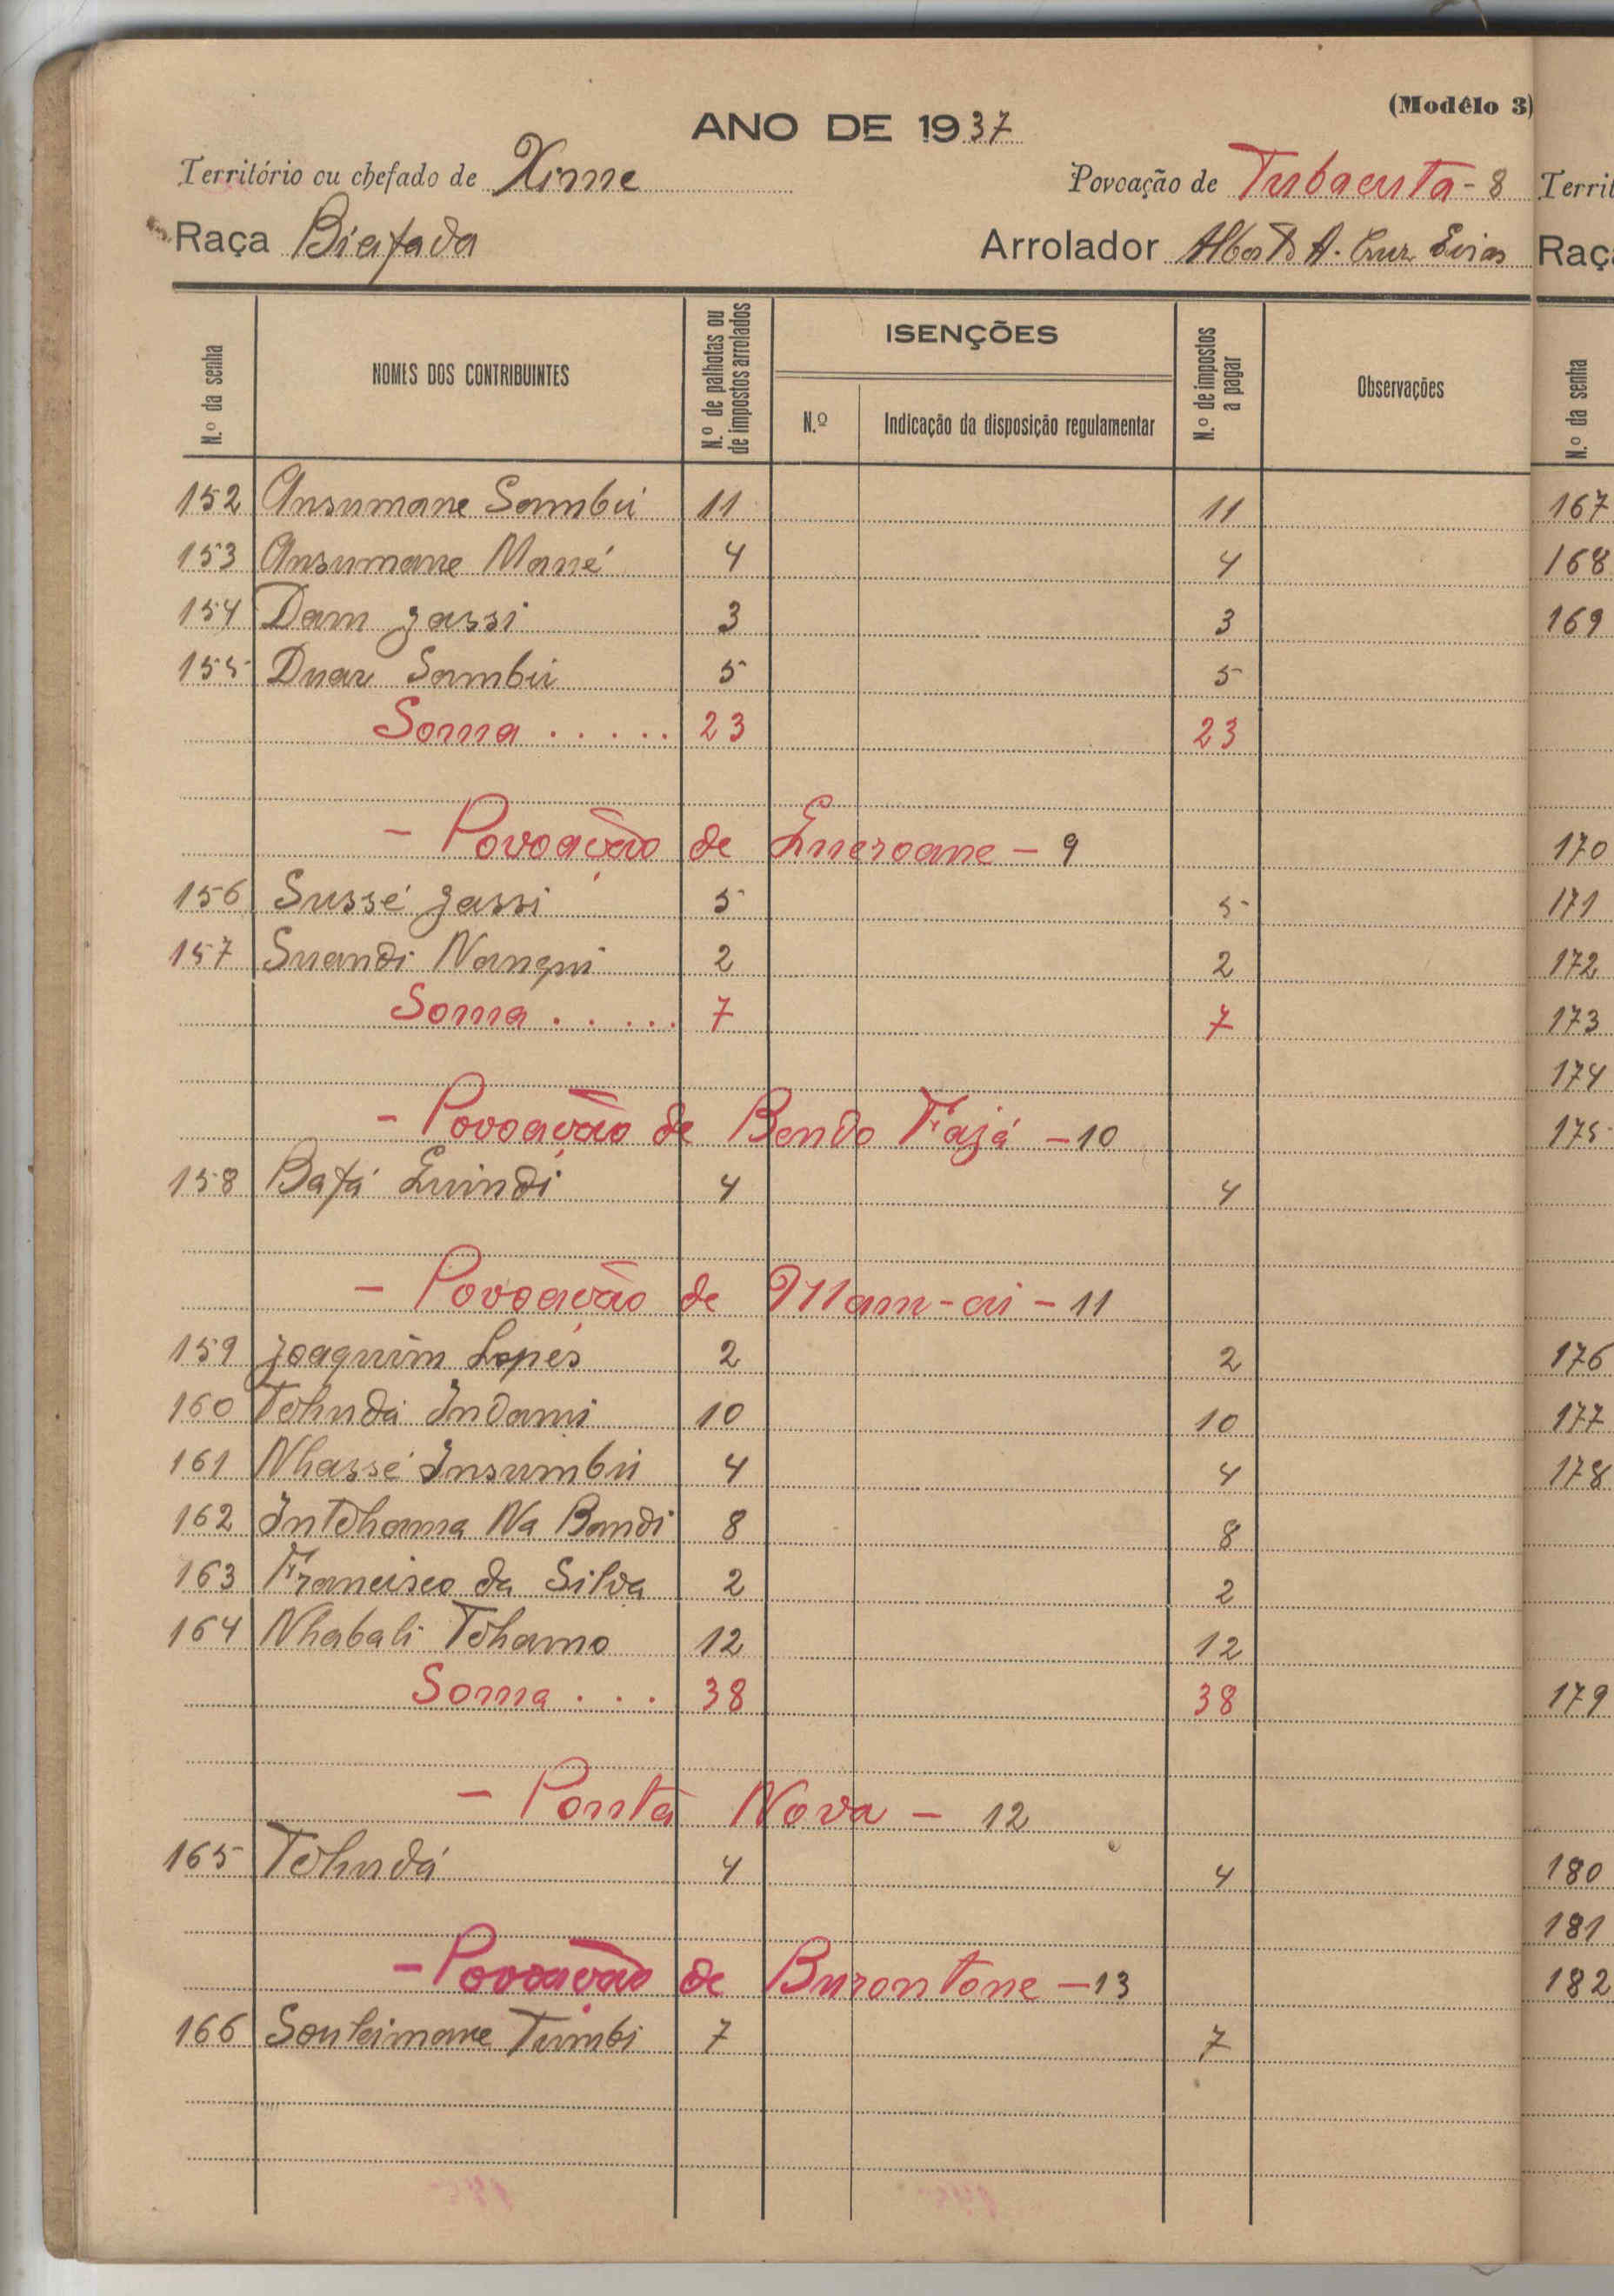 (Modêlo 3)
ANO DE 1937
Território ou chefado de Xime Povoação de Tubacuta - 8
Raça Biafada Arrolador Alberto A. Cruz
N.º da senha NOMES DOS CONTRIBUINTES N.º de palhotas ou de impostos arrolados ISENÇÕES N.º Indicação da disposição regulamentar N.º de impostos a pagar Observações
152 Ansumane Sambú 11 11
153 Ansumane Mané 4 4
154 Dam Jassi 3 3
155 Duau Sambú 5 5
Soma ..... 23 23
- Povoação de - 9
156 Sussé Jassi 5 5
157 Suandi Nanqui 2 2
Soma ..... 7 7
- Povoação de Bendo Fajá - 10
158 Bafá 4 4
- Povoação de Mam-ai - 11
159 Joaquim Lopes 2 2
160 Tchudá Indami 10 10
161 Nhassé Insumbú 4 4
162 Intchama Na Bandi 8 8
163 Francisco da Silva 2 2
164 Nhabali Tchamo 12 12
Soma ... 38 38
- Ponta Nova - 12
165 Tchudá 4 4
- Povoação de Burontone - 13
166 Souleimane Tumbi 7 7
Territ
Raç
N.º da senha
167
168
169
170
171
172
173
174
175
176
177
178
179
180
181
182